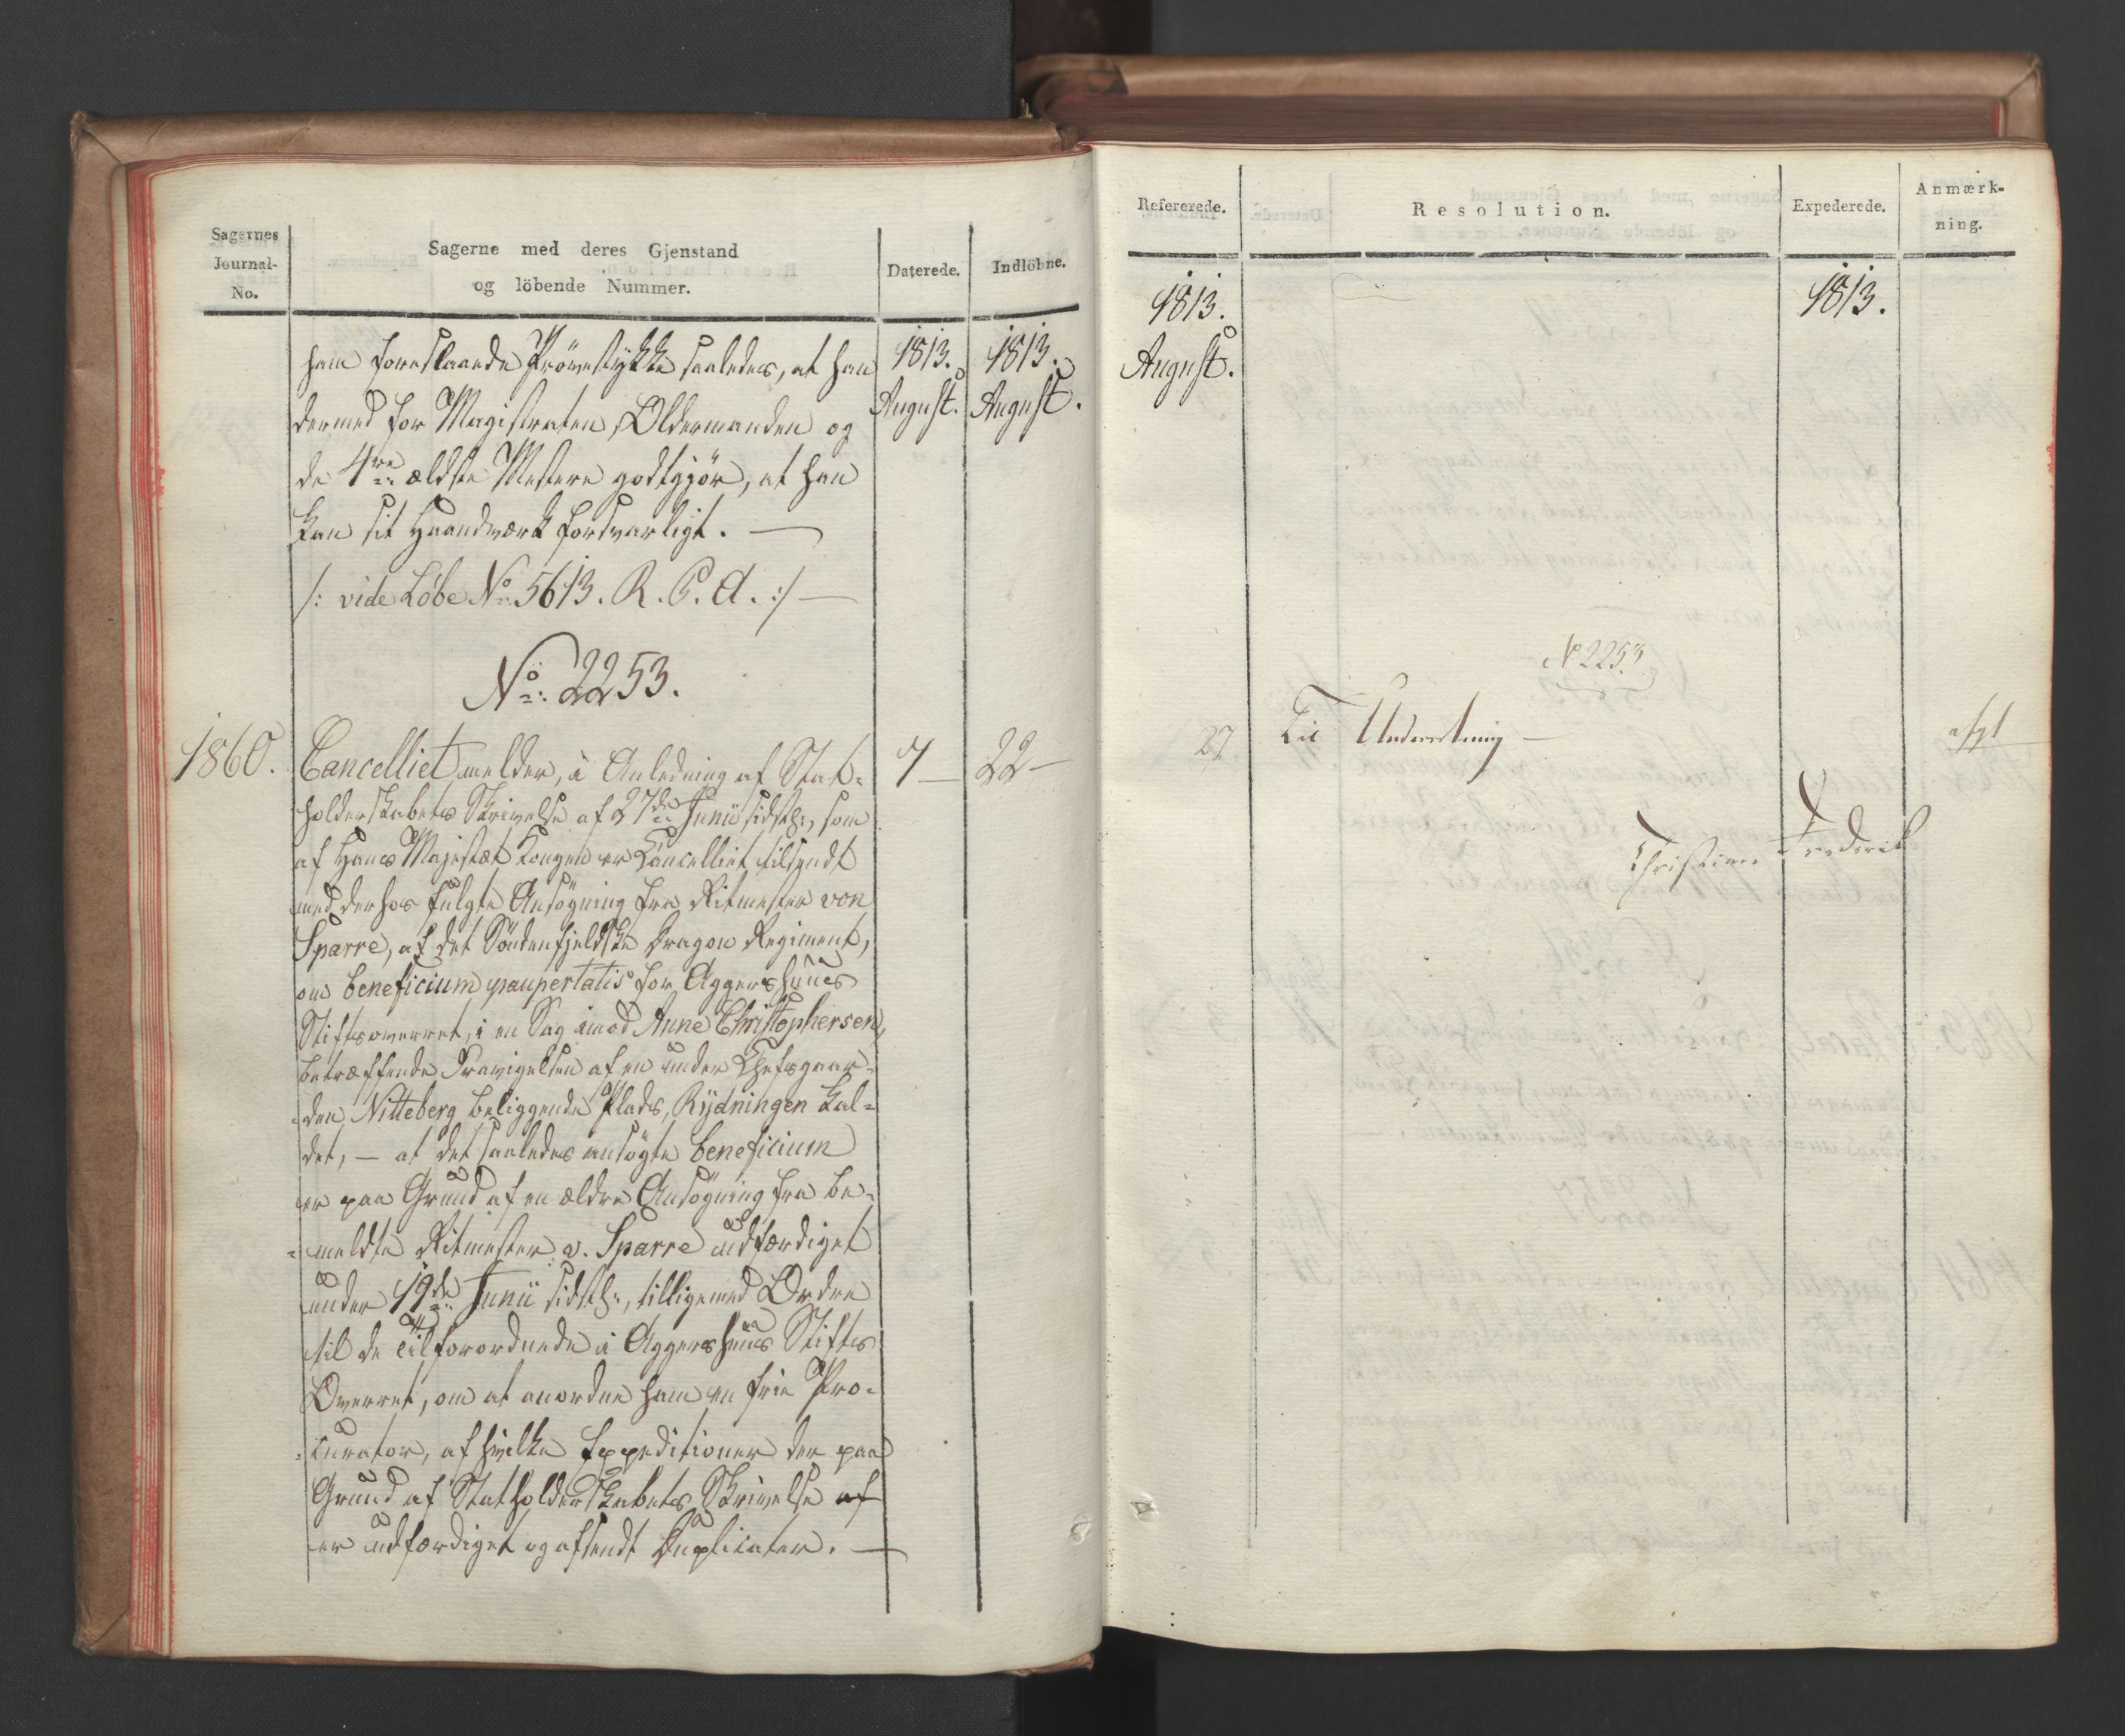 Sagernes
Journal-
No.
Sagerne med deres Gjenstand
og löbende Nummer.
Daterede.
Indlöbne.
1813.
August.
1813.
August.
ham foreslaaede Prövestykke saaledes, at han
dermed for Magistraten, Oldermanden og
de 4re ældste Mestere godtgjör, at han
kan sit Haandværk forsvarligt. —
/: vide Löbe No 5613. R. P. A. :/ —
No: 2253.
1860.
Cancelliet melder, i Anledning af Stat-
holderskabets Skrivelse af 27de Junii sidstl:, som
af Hans Majestæt Kongen er Cancelliet tilsendt
med derhos fulgte Ansögning fra Ritmester von
Sparre, af det Söndenfjeldske Dragon Regiment,
om beneficium paupertatis for Aggershuus
Stiftsoverret, i en Sag imod Anne Christophersen,
betræffende Fravigelsen af en under Chefsgaar-
den Nitteberg beliggende Plads, Rydningen kal-
det, — at det saaledes ansögte beneficium
er paa Grund af en ældre Ansögning fra be-
meldte Ritmester v. Sparre udfærdiget
under 19de Junii sidstl:, tilligemed Ordre
til de Tilforordnede i Aggershuus Stifts
Overret, om at anordne ham en frie Pro-
curator, af hvilke Expeditioner der paa
Grund af Statholderskabets Skrivelse af
er udfærdiget og afsendt Duplicater. —
7 —
22 —
Refererede.
Resolution.
Expederede.
Anmærk-
ning.
1813.
August.
1813.
No 2253
27.
Til Underretning —
Christian Frederik